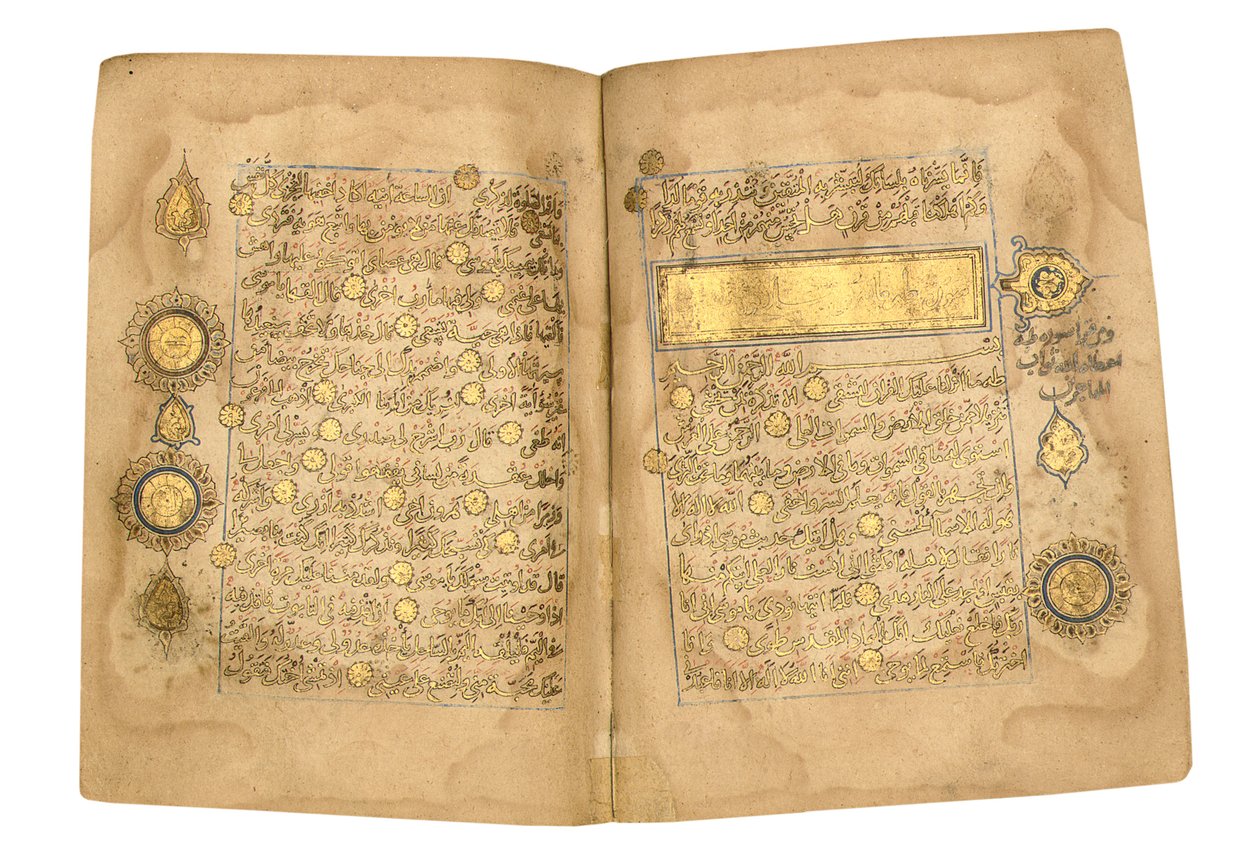 فإنما يسرناه بلسانك لتبشر به المتقين وتنذر به قوما لدا
وكم أهلكنا قبلهم من قرن هل تحس منهم من أحد أو تسمع لهم ركزا
بسم الله الرحمن الرحيم
طه ما أنزلنا عليك القرآن لتشقى إلا تذكرة لمن يخشى
تنزيلا ممن خلق الأرض والسموات العلى الرحمن على العرش
استوى له ما في السموات وما في الأرض وما بينهما وما تحت الثرى
وإن تجهر بالقول فإنه يعلم السر وأخفى الله لا إله إلا
هو له الأسماء الحسنى وهل أتاك حديث موسى إذ رأى
نارا فقال لأهله امكثوا إني آنست نارا لعلي آتيكم منها
بقبس أو أجد على النار هدى فلما أتاها نودي يا موسى إني أنا
ربك فاخلع نعليك إنك بالواد المقدس طوى وأنا
اخترتك فاستمع لما يوحى إنني أنا الله لا إله إلا أنا فاعبدني
ومن قرا سوره طه
اعطاه الله ثواب
المهاجرين
وأقم الصلوة لذكري إن الساعة آتية أكاد أخفيها لتجزى كل نفس
بما تسعى فلا يصدنك عنها من لا يؤمن بها واتبع هواه فتردى
وما تلك بيمينك يا موسى قال هي عصاي أتوكؤ عليها وأهش
بها على غنمي ولي فيها مآرب أخرى قال ألقها يا موسى
فألقاها فإذا هي حية تسعى قال خذها ولا تخف سنعيدها
سيرتها الأولى واضمم يدك إلى جناحك تخرج بيضاء من
غير سوء آية أخرى لنريك من آياتنا الكبرى اذهب إلى فرعون
إنه طغى قال رب اشرح لي صدري ويسر لي أمري
واحلل عقدة من لساني يفقهوا قولي واجعل لي
وزيرا من أهلي هرون أخي اشدد به أزري وأشركه
في أمري كي نسبحك كثيرا ونذكرك كثيرا إنك كنت بنا بصيرا
قال قد أوتيت سؤلك يا موسى ولقد مننا عليك مرة أخرى
إذ أوحينا إلى أمك ما يوحى أن اقذفيه في التابوت فاقذفيه
في اليم فليلقه اليم بالساحل يأخذه عدو لي وعدو له وألقيت
عليك محبة مني ولتصنع على عيني إذ تمشي أختك فتقول